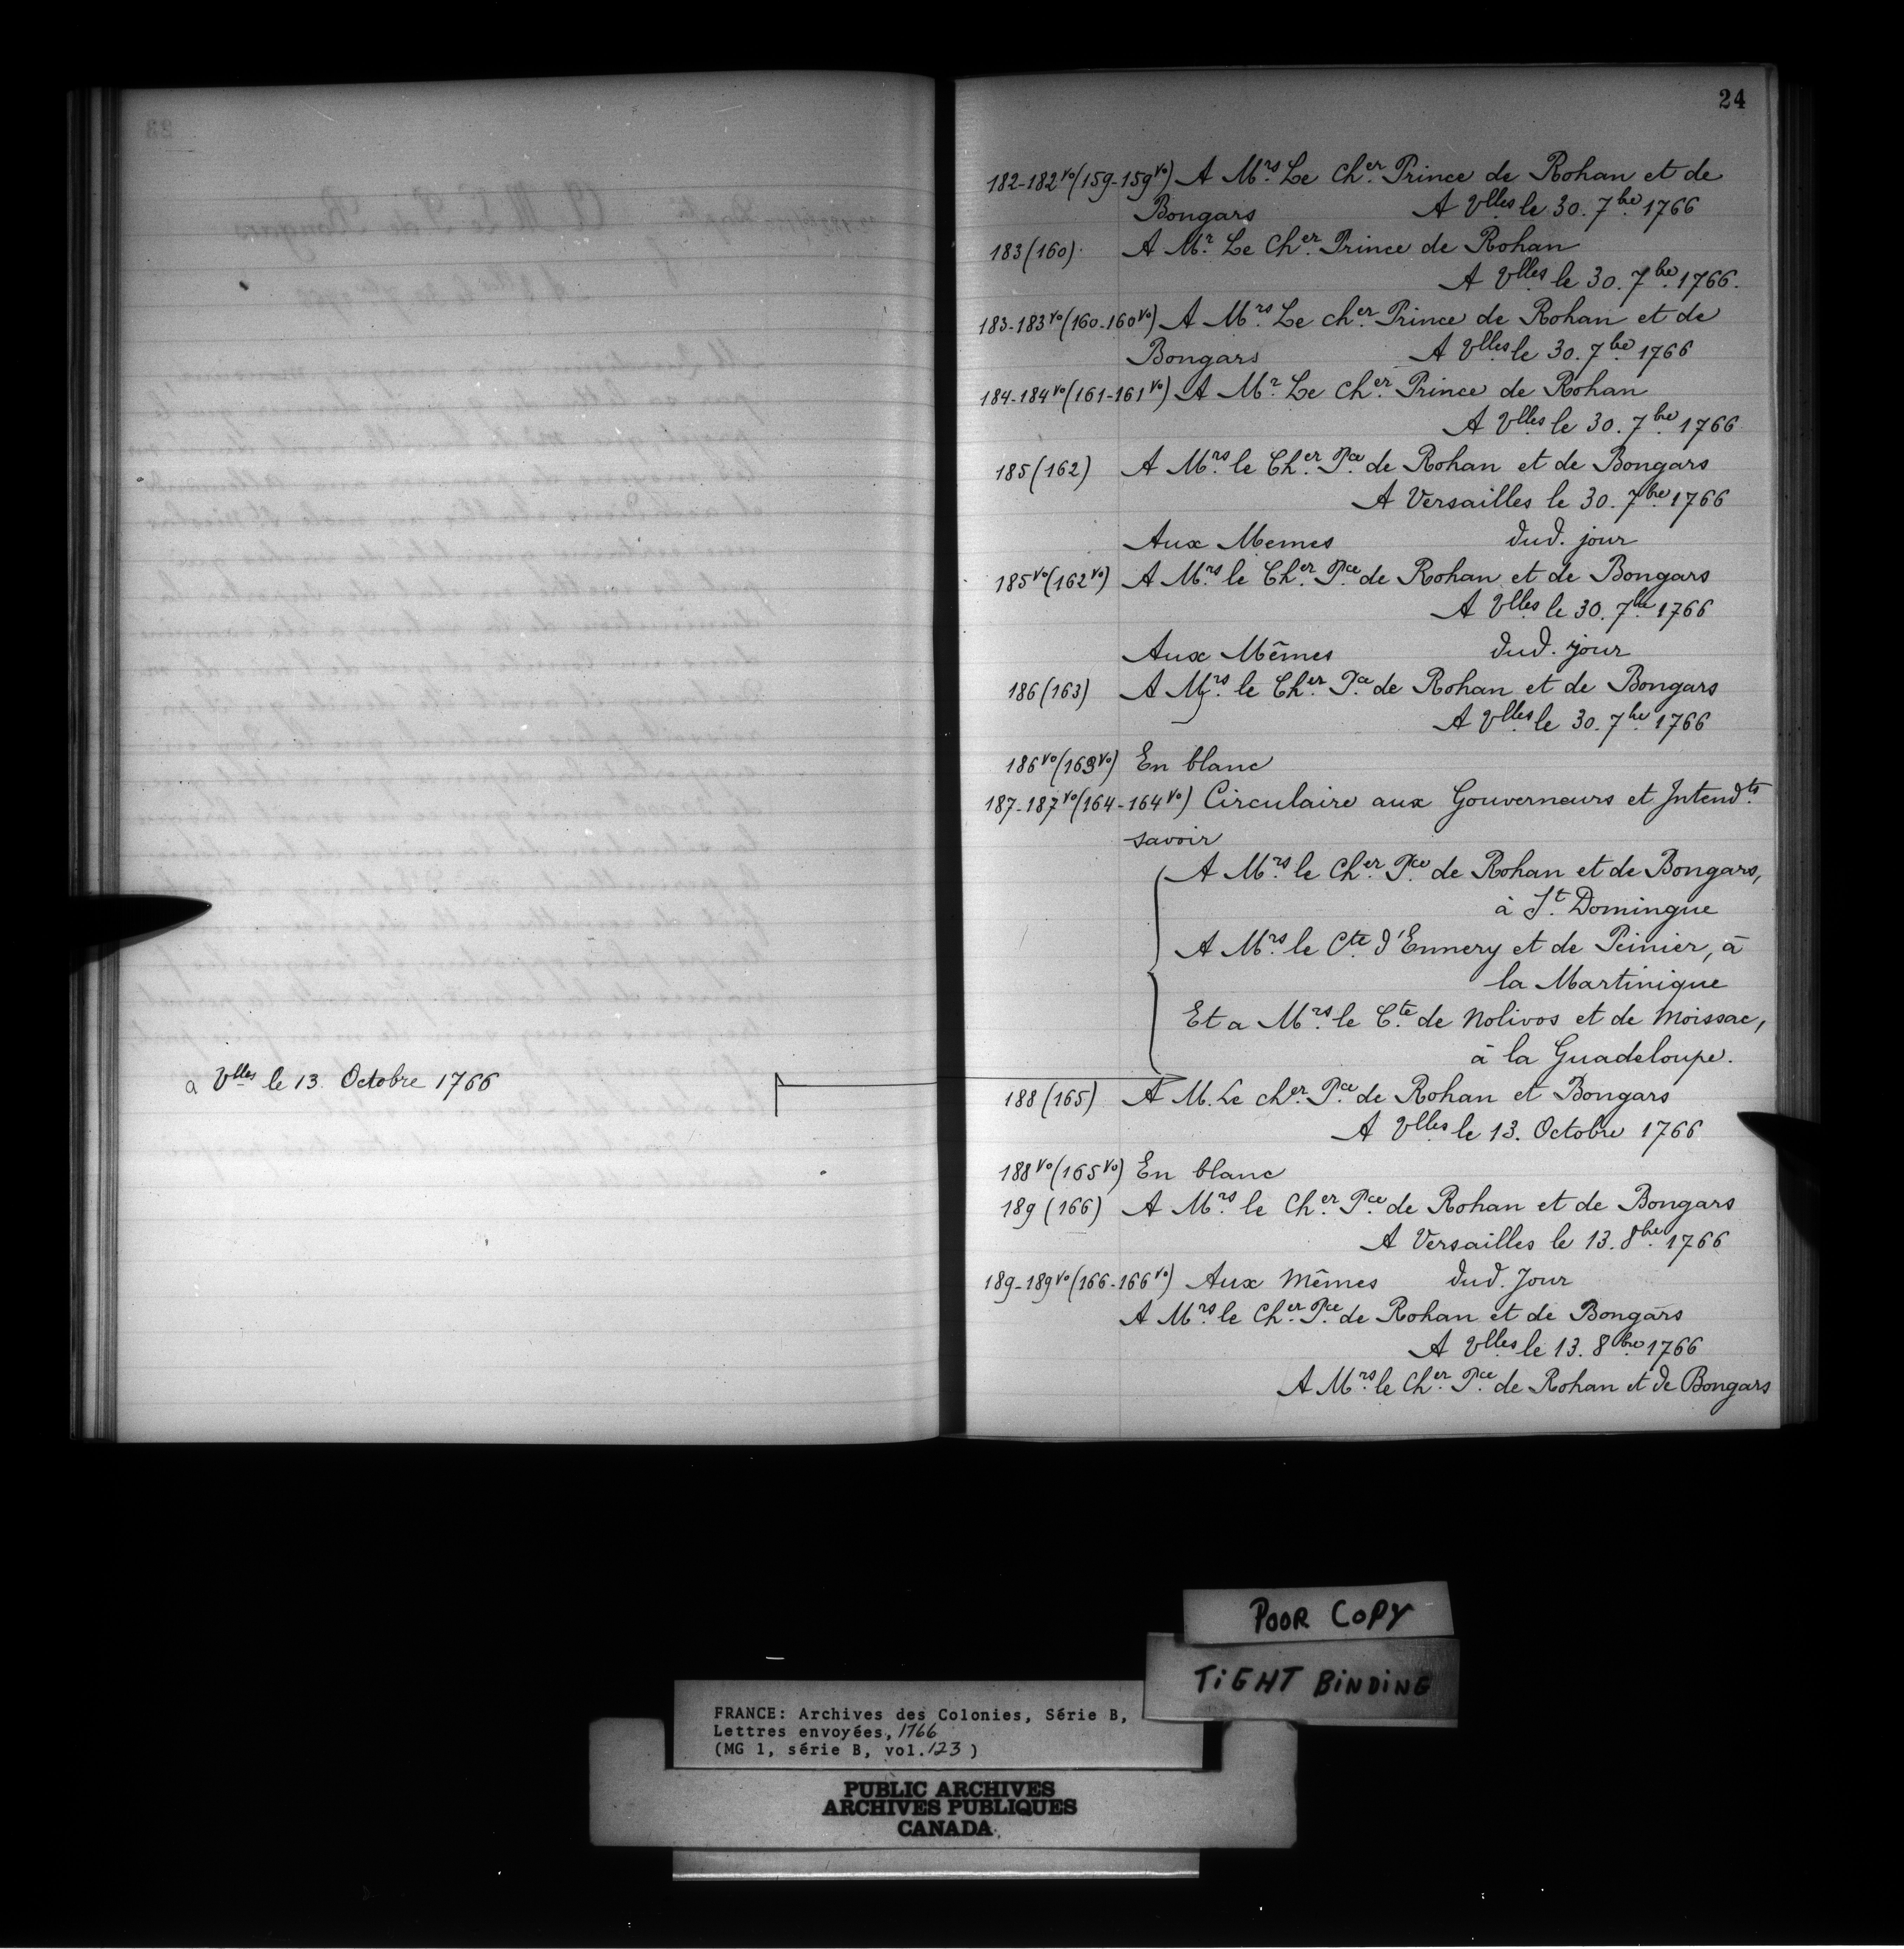 a Vlles le 13. Octobre 1766
24
182-182vo (159-159vo) A Mrs. Le Cher. Prince de Rohan et de
Bongars A Vlles le 30. 7bre 1766
183 (160). A Mr. Le Cher. Prince de Rohan
A Vlles le 30. 7bre. 1766.
183-183vo (160-160vo) A Mrs. Le cher. Prince de Rohan et de
Bongars A Vlles le 30. 7bre. 1766
184-184vo (161-161vo) A Mr. Le Cher. Prince de Rohan
A Vlles le 30. 7bre. 1766
185 (162) A Mrs. le Cher. Pce. de Rohan et de Bongars
A Versailles le 30. 7bre. 1766
Aux Memes dud. jour
185vo (162vo) A Mrs. le Cher. Pce. de Rohan et de Bongars
A Vlles le 30. 7bre. 1766
Aux Mêmes dud. jour
186 (163) A Mrs. le Cher. Pce. de Rohan et de Bongars
A Vlles le 30. 7bre. 1766
186vo (163vo) En blanc
187-187vo (164-164vo) Circulaire aux Gouverneurs et Intendts.
savoir
A Mrs. le Cher. Pce. de Rohan et de Bongars,
à St. Domingue
A Mrs. le Cte. d'Ennery et de Peinier, à
la Martinique
Et a Mrs. le Cte. de Nolivos et de Moissac,
à la Guadeloupe.
188 (165) A M. Le cher. Pce. de Rohan et Bongars
A Vlles le 13. Octobre 1766
188vo (165vo) En blanc
189 (166) A Mrs. le Cher. Pce. de Rohan et de Bongars
A Versailles le 13. 8bre. 1766
189-189vo (166-166vo) Aux Mêmes dud. Jour
A Mrs. le Cher. Pce. de Rohan et de Bongars
A Vlles le 13. 8bre. 1766
A Mrs. le Cher. Pce. de Rohan et de Bongars
POOR COPY
TiGHT BiNDiNG
FRANCE: Archives des Colonies, Série B,
Lettres envoyées, 1766
(MG 1, série B, vol. 123)
PUBLIC ARCHIVES
ARCHIVES PUBLIQUES
CANADA